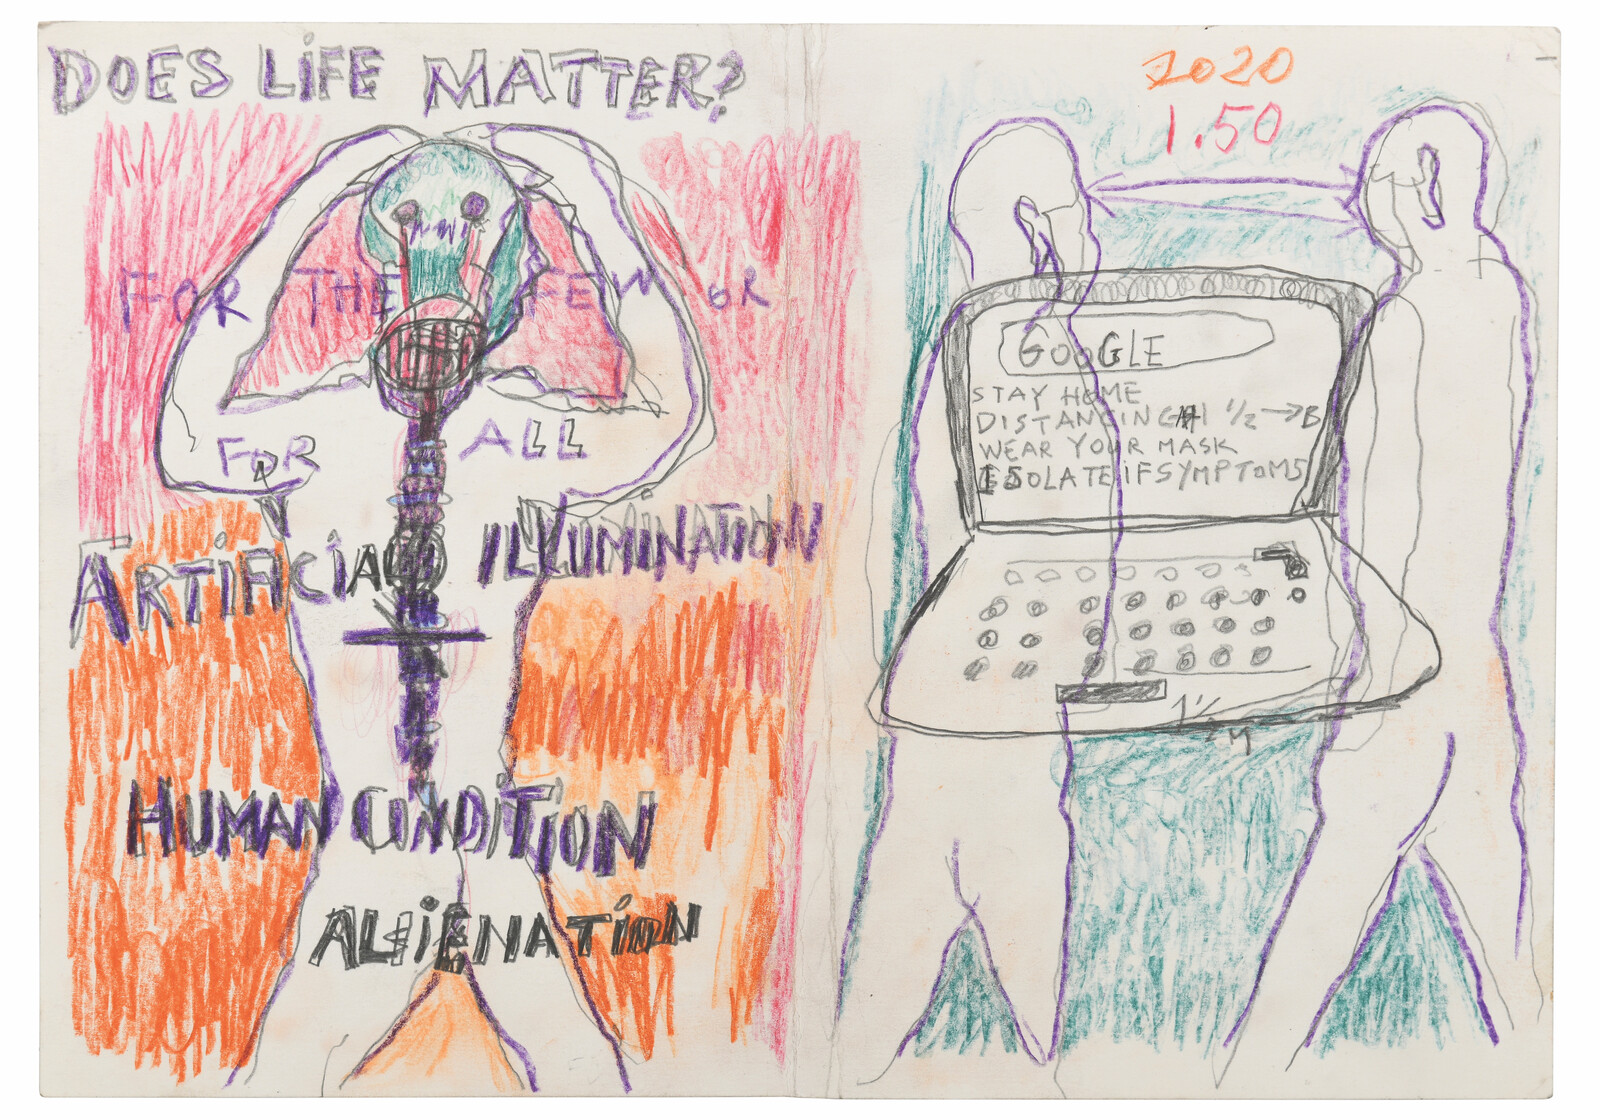 DOES LiFE MATTER?
FOR THE FEW OR
FOR ALL
ARTiFiCiAL ILLUMiNATiON
HUMAN CONDiTiON
ALiENATiON
2020
1.50
GOOGLE
STAY HOME
DISTANCING 1 1/2 → B
WEAR YOUR MASK
ISOLATE IF SYMPTOMS
1 1/2 M